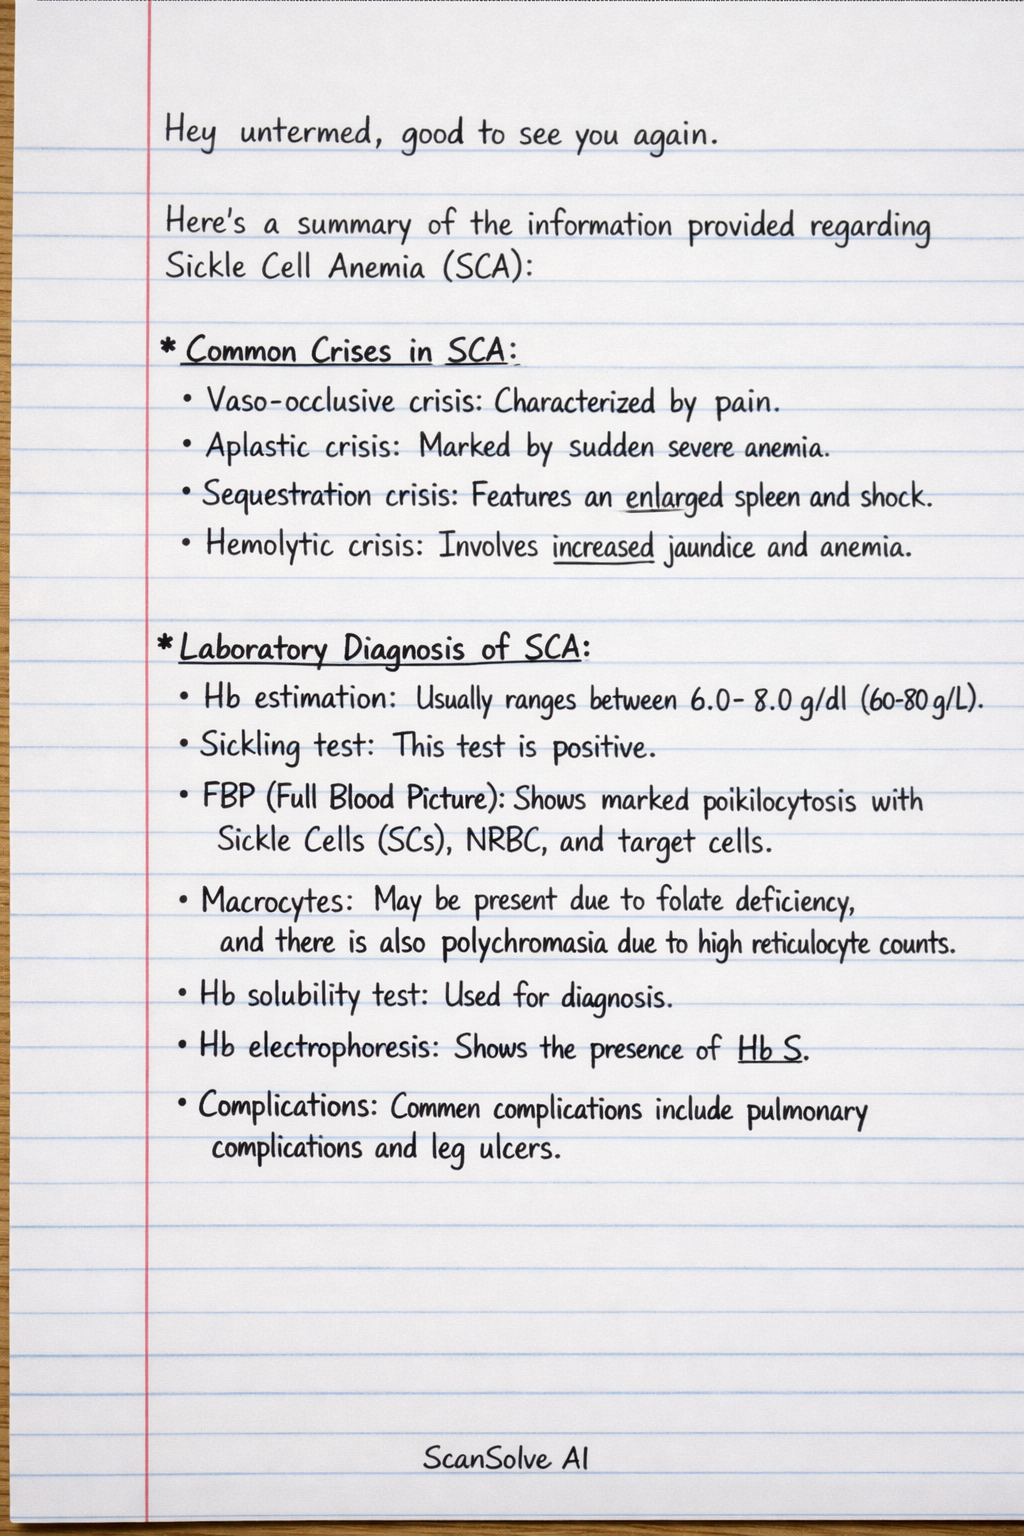 Hey untermed, good to see you again.
Here's a summary of the information provided regarding
Sickle Cell Anemia (SCA):
* Common Crises in SCA:
• Vaso-occlusive crisis: Characterized by pain.
• Aplastic crisis: Marked by sudden severe anemia.
• Sequestration crisis: Features an enlarged spleen and shock.
• Hemolytic crisis: Involves increased jaundice and anemia.
* Laboratory Diagnosis of SCA:
• Hb estimation: Usually ranges between 6.0- 8.0 g/dl (60-80 g/L).
• Sickling test: This test is positive.
• FBP (Full Blood Picture): Shows marked poikilocytosis with
Sickle Cells (SCs), NRBC, and target cells.
• Macrocytes: May be present due to folate deficiency,
and there is also polychromasia due to high reticulocyte counts.
• Hb solubility test: Used for diagnosis.
• Hb electrophoresis: Shows the presence of Hb S.
• Complications: Commen complications include pulmonary
complications and leg ulcers.
ScanSolve AI